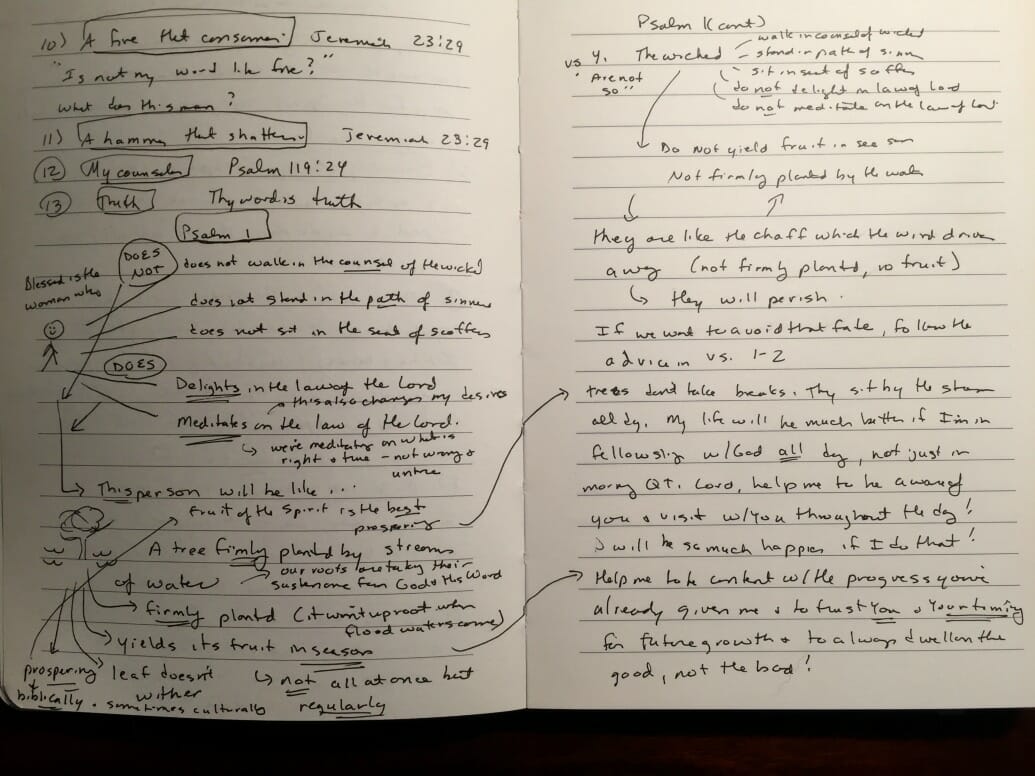 10) A fire that consumes Jeremiah 23:29
"Is not my word like fire?"
What does this mean?
11) A hammer that shatters Jeremiah 23:29
12) My counselor Psalm 119:24
13) Truth Thy word is truth
Psalm 1
Blessed is the
woman who
DOES
NOT
does not walk in the counsel of the wicked
does not stand in the path of sinners
does not sit in the seat of scoffers
DOES
Delights in the law of the Lord
this also changes my desires
Meditates on the law of the Lord.
we're meditating on what is
right & true - not wrong &
untrue
This person will be like ...
fruit of the Spirit is the best
prospering
A tree firmly planted by streams
of water
our roots are taking their
sustenance from God & His Word
firmly planted (it won't uproot when
flood waters come)
yields its fruit in season
not all at once but
regularly
leaf doesn't
wither
prospering
biblically. sometimes culturally
Psalm 1 (cont)
vs 4. The wicked
"Are not
so"
walk in counsel of wicked
stand in path of sinners
sit in seat of scoffers
do not delight in law of Lord
do not meditate on the law of Lord
Do Not yield fruit in season
Not firmly planted by the water
they are like the chaff which the wind drives
away (not firmly planted, no fruit)
they will perish.
If we want to avoid that fate, follow the
advice in vs. 1-2
trees don't take breaks. They sit by the stream
all day. My life will be much better if I'm in
fellowship w/God all day, not just in
morning QT. Lord, help me to be aware of
you & visit w/You throughout the day!
I will be so much happier if I do that!
Help me to be content w/the progress you've
already given me & to trust You & Your timing
for future growth & to always dwell on the
good, not the bad!